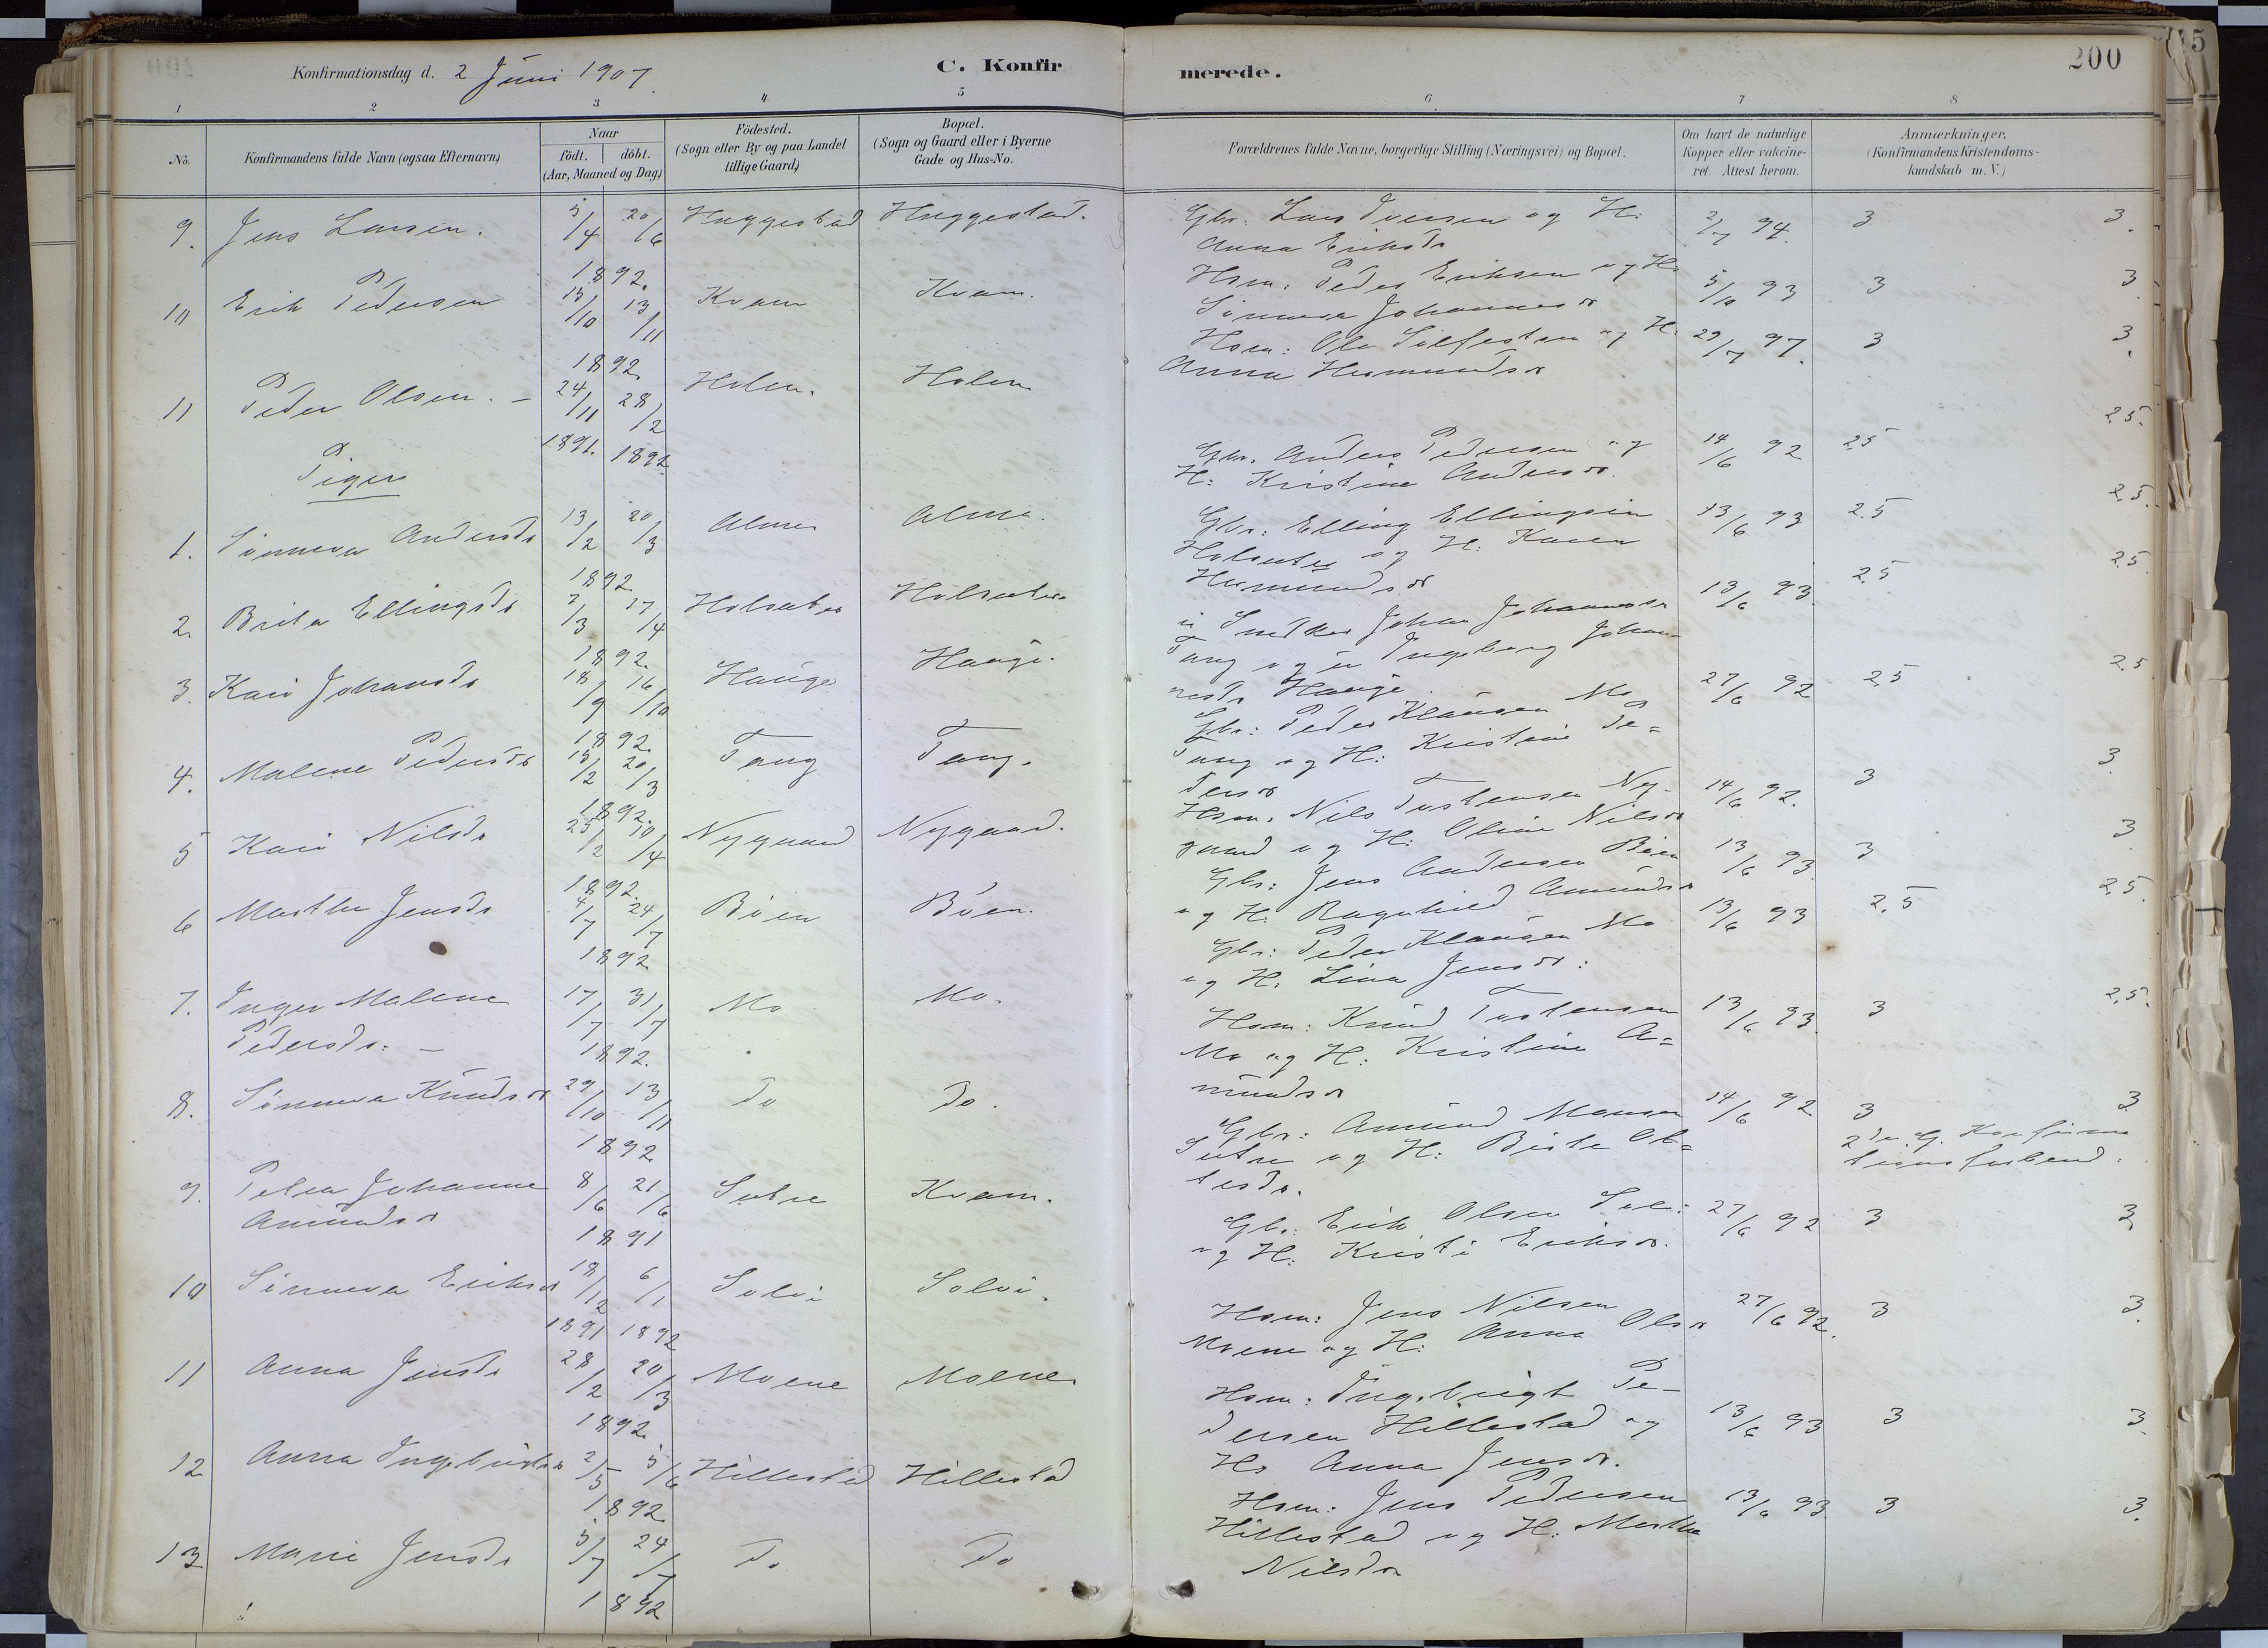 Konfirmationsdag d. 2 Juni 1907.
C. Konfirmerede.
200
1 2 3 4 5 6 7 8
No.
Konfirmandens fulde Navn (ogsaa Efternavn)
Naar
födt. döbt.
(Aar, Maaned og Dag)
Födested.
(Sogn eller By og paa Landet
tillige Gaard)
Bopæl.
(Sogn og Gaard eller i Byerne
Gade og Hus-No.
Forældrenes fulde Navne, borgerlige Stilling (Næringsvei) og Bopæl.
Om havt de naturlige
Kopper eller vakcine-
ret. Attest herom.
Anmærkninger.
(Konfirmandens Kristendoms-
kundskab m. V.)
9. Jens Larsen. 5/4 20/6 Huggestad Huggestad.
1892.
10 Erik Pedersen 15/10 13/11 Kvam Kvam.
1892.
11 Peder Olsen. - 24/11 28/2 Holen. Holen
1891. 1892
Piger
1. Sönneva Andersdr 13/2 20/3 Alme Alme.
1892
2. Brita Ellingsdr 3/3 17/4 Holsæter Holsæter
1892.
3. Kari Johansdr 18/9 16/10 Hauge Hauge.
1892.
4. Malene Pedersdr 15/2 20/3 Tang Tang.
1892.
5 Kari Nilsdr 25/2 10/4 Nygaard Nygaard.
1892.
6 Marthe Jensdr 4/7 24/7 Böen Böen.
1892
7. Inger Malene 17/7 31/7 Mo Mo.
Pedersdr: - 1892.
8. Sönneva Knudsdr 29/10 13/11 Do Do.
1892.
9. Petra Johanne 8/6 21/6 Sætre Kvam.
Amundsdr 1891
10 Sönneva Eriksdr 18/12 6/1 Solvi Solvi.
1891 1892
11 Anna Jensdr 28/2 20/3 Moene Moene
1892.
12 Anna Ingebrigtsdr 2/5 5/6 Hillestad Hillestad
1892.
13 Marie Jensdr 5/7 24/7 Do Do
1892
Gbr. Lars Iversen og H: 2/7 94. 3 3.
Anna Eriksdr
Hsm: Peder Eriksen og H: 5/10 93 3 3.
Sönneva Johannesdr
Hsm: Ole Sylfestsen og H. 29/7 97. 3 3.
Anna Hermundsdr
Gbr. Anders Pedersen og 14/6 92 2.5 2.5.
H: Kristine Andersdr.
Gbr: Elling Ellingsen 13/6 93 2.5 2.5.
Holsæter og H: Karen
Hermundsdr
Snedker Johan Johannesen 13/6 93. 2.5 2.5.
Tang og Ingeborg Johan-
nesdr Hauge.
Gbr: Peder Klausen 27/6 92 2.5 2.5
Tang og H: Kristine Pe=
dersdr
Hsm. Nils Tostensen Ny- 14/6 92. 3 3.
gaard og H: Oline Nilsdr
Gbr: Jens Andersen Böen 13/6 93. 3 3.
og H: Ragnhild Amundsdr
Gbr: Peder Klausen Mo 13/6 93 2.5 2.5.
og H. Lina Jensdr:
Hsm: Knud Tostensen 13/6 93. 3 2.5.
Mo og H: Kristine A=
mundsdr
Gbr: Amund Monsen 14/6 92 3 3
Sætre og H: Brita Ot-
tesdr.
2den G. Konfirma
tionsforbered.
Gbr: Erik Olsen Sol: 27/6 92 3 3.
og H: Kristi Eriksdr.
Hsm: Jens Nilsen 27/6 92. 3 3.
Moene og H: Anna Olsdr
Hsm: Ingebrigt Pe-
dersen Hillestad og 13/6 93 3 3.
H: Anna Jensdr.
Hsm: Jens Pedersen 13/6 93 3 3.
Hillestad og H: Martha
Nilsdr